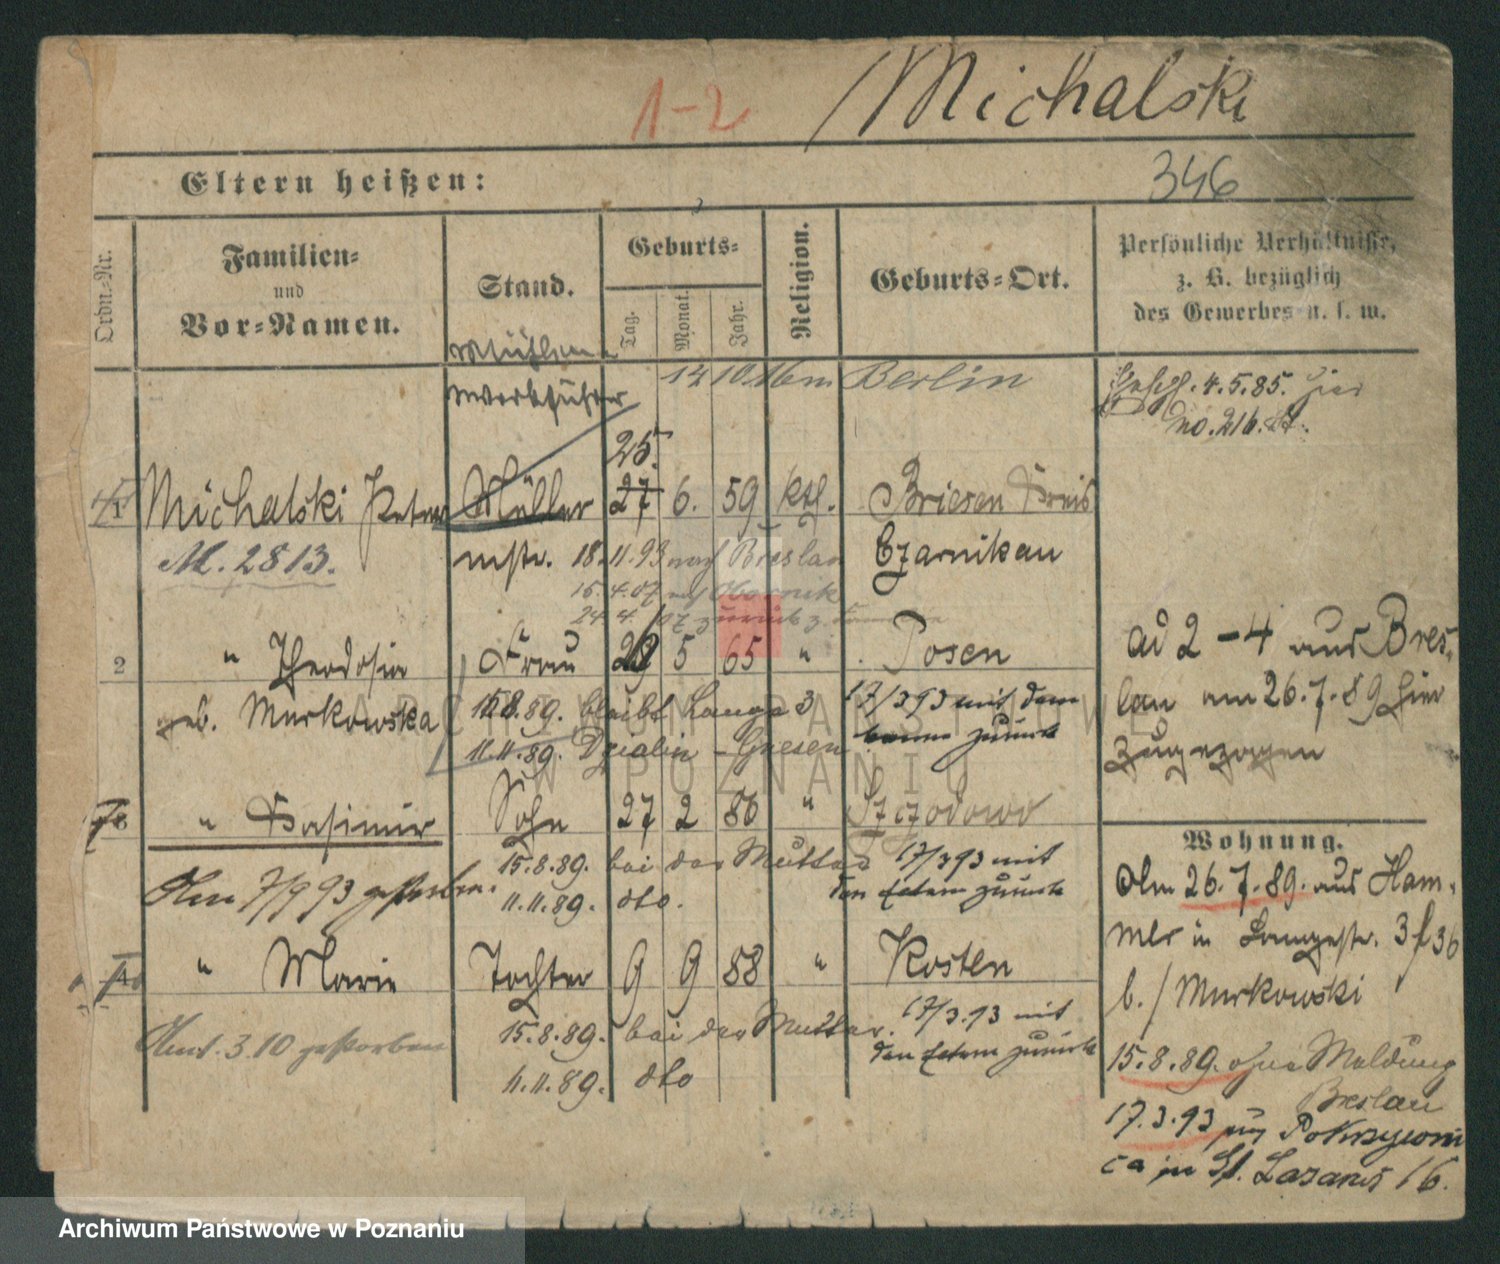 1-2 Michalski
Eltern heißen: 346
Ordn.-Nr.
Familien-
und
Vor-Namen.
Stand.
Geburts-
Tag. Monat. Jahr.
Religion.
Geburts-Ort.
Persönliche Verhältnisse,
z. B. bezüglich
des Gewerbes u. s. w.
Werkführer
Berlin
4.5.85. hier
no. 216.
25.
1 Michalski Peter Müller 27 6. 59 ktl. Briesen Kreis
M. 2813. mstr. 18. 11.93 nach Breslau Czarnikau
15.4.07 Obornik
24.4. 07 zurück
2 " Theodosia Frau 29 5 65 " Posen
geb. Murkowska 15.8.89. bleibt Lange 3 17/3 93 mit dem
11.11.89. Dzialin - Gnesen zurück
ad 2-4 aus Bres-
lau am 26.7.89 hier
zugezogen
3 " Kasimir Sohn 27 2 86 "
15.8.89. bei der Mutter 17/3 93 mit
Am 7/9 93 gestorben. 11.11.89. dto. den Eltern zurück
4 " Marie Tochter 9 9 88 " Kosten
15.8.89. bei der Mutter. 17/3.93 mit
3.10 gestorben 11.11.89. dto den Eltern zurück
Wohnung.
Am 26.7.89. aus Ham-
mer in Langestr. 3
b. Murkowski
15.8.89. ohne Meldung
Breslau
17.3.93
in St. Lazarus 16.
ARCHIWUM PAŃSTWOWE
W POZNANIU
Archiwum Państwowe w Poznaniu